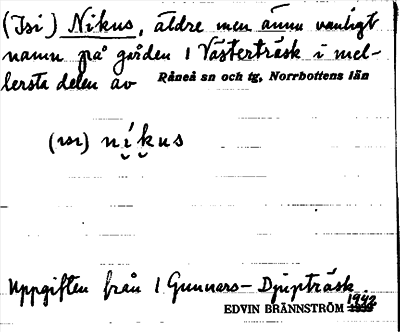 (Isi) Nikus, äldre men ännu vanligt
namn på gården 1 Västerträsk i mel-
lersta delen av Råneå sn och tg, Norrbottens län
(ısı) níkus
Uppgiften från 1 Gunnars-Djupträsk.
EDVIN BRÄNNSTRÖM 1942